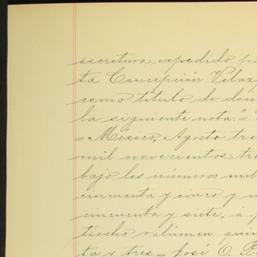 escritura expedido p
ta Concepción Velaz
como titulo de don
la siguiente nota:=
=México, Agosto tre
mil novecientos tre
bajo los números mil
cincuenta y cinco y m
cincuenta y siete, a
tsocho volúmen quin
ta y tres= José O. P.